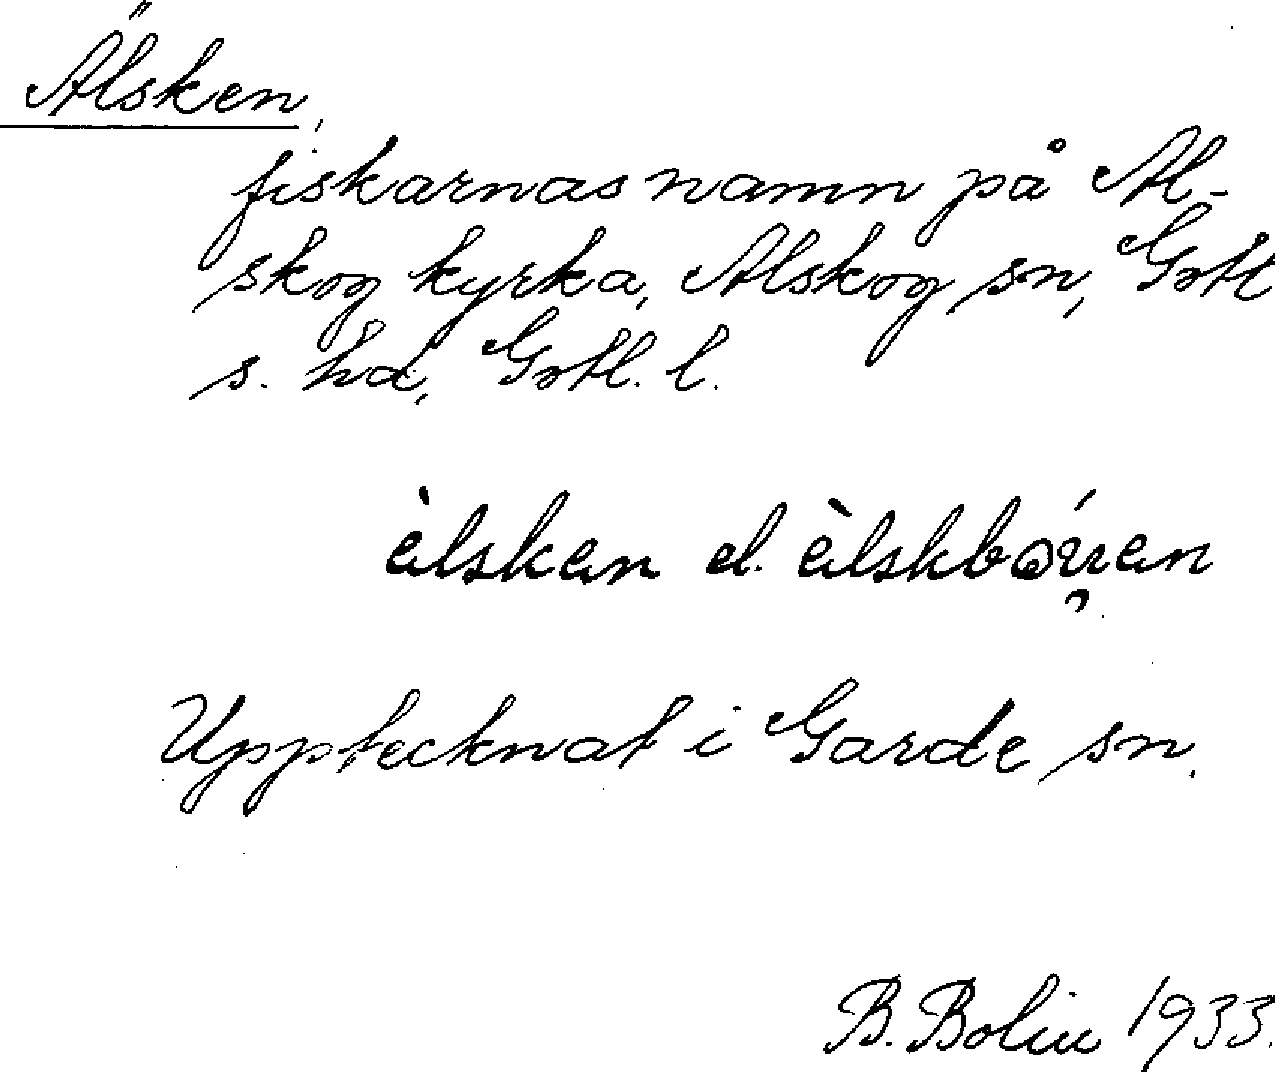 Älsken,
fiskarnas namn på Al-
skog kyrka, Alskog sn, Gotl
s. hd, Gotl. l.
àlskan el. àlskbǫ́ren
Upptecknat i Garde sn.
B. Bolin 1933.